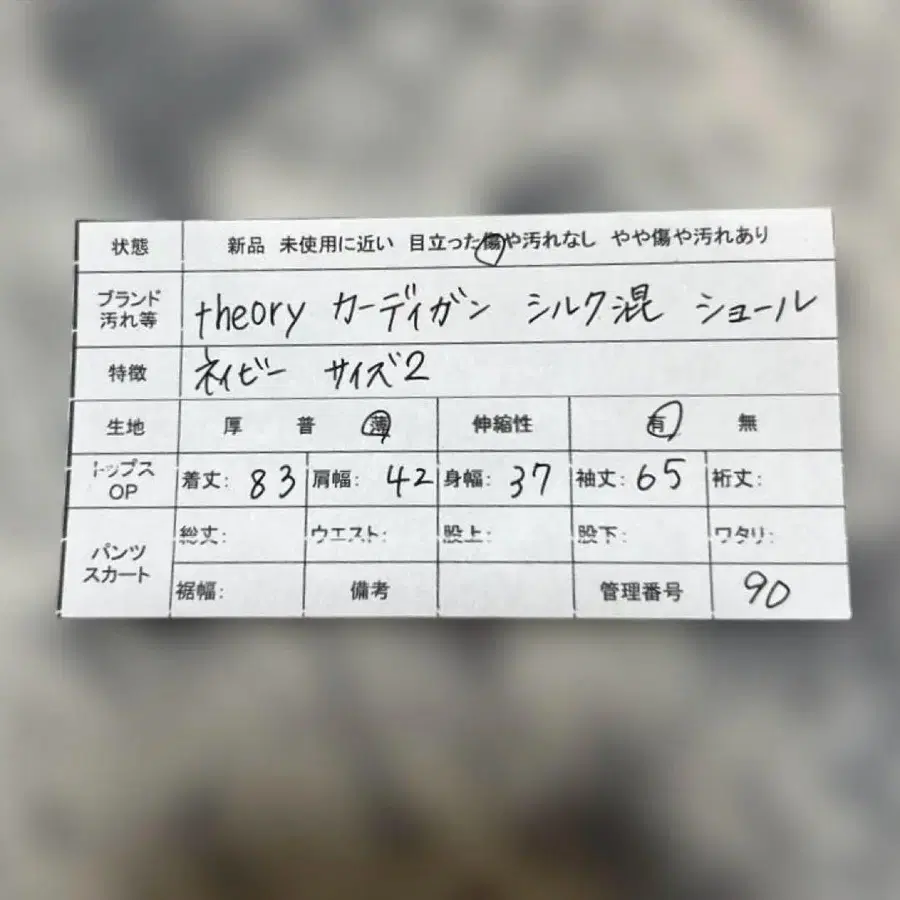 状態 新品 未使用に近い 目立った傷や汚れなし やや傷や汚れあり
ブランド
汚れ等
theory カーディガン シルク混 ショール
特徴 ネイビー サイズ2
生地 厚 普 薄 伸縮性 有 無
トップス
OP
着丈: 83 肩幅: 42 身幅: 37 袖丈: 65 裄丈:
パンツ
スカート
総丈: ウエスト: 股上: 股下: ワタリ:
裾幅: 備考 管理番号 90